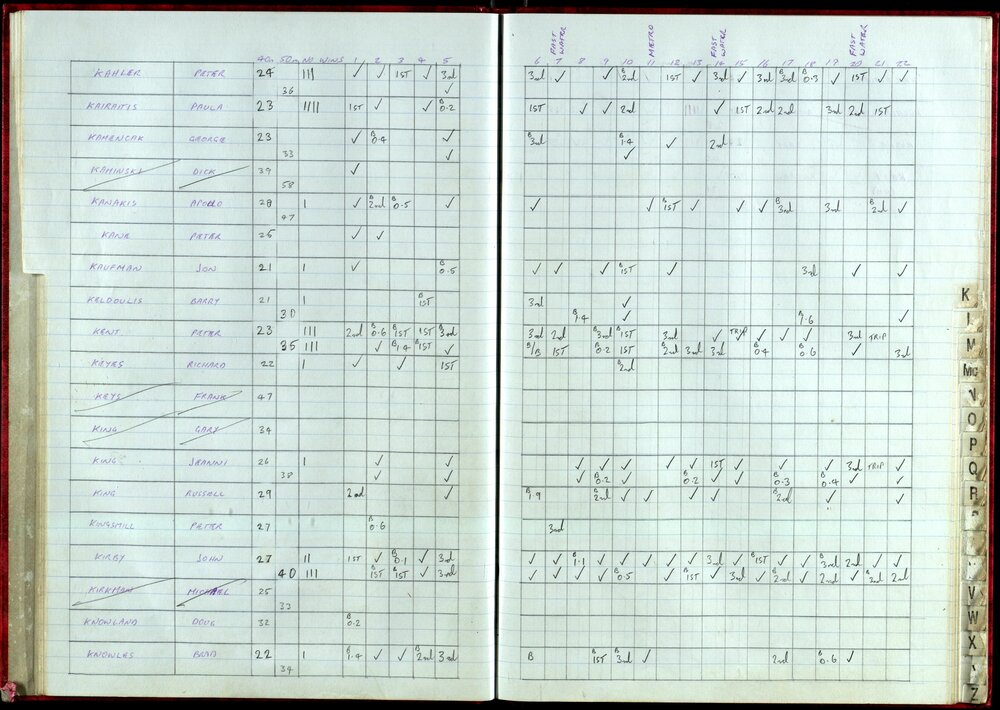 FAST WATER METRO FAST WATER FAST WATER
40m 50m NO WINS 1 2 3 4 5 6 7 8 9 10 11 12 13 14 15 16 17 18 19 20 21 22
KAHLER PETER 24 IIII ✓ ✓ 1ST ✓ 3rd 3rd ✓ ✓ B 2nd 1ST ✓ 3rd ✓ 3rd B 3rd B 0.3 ✓ 1ST ✓ ✓
36 ✓
KAIRAITIS PAULA 23 IIII 1ST ✓ ✓ B 0.2 1ST ✓ ✓ 2nd ✓ 1ST 2nd 2nd 3rd 2nd 1ST
KAMENCAK GEORGE 23 ✓ B 0.4 ✓ B 3rd B 1.4 ✓ 2nd
33 ✓ ✓
KAMINSKI DICK 39 ✓
58
KANAKIS APOLLO 28 I ✓ B 2nd B 0.5 ✓ ✓ ✓ B 1ST ✓ ✓ ✓ B 3rd 3rd B 2nd ✓
47
KANE PETER 25 ✓ ✓
KAUFMAN JON 21 I ✓ B 0.5 ✓ ✓ ✓ B 1ST ✓ 3rd ✓ ✓
KELDOULIS BARRY 21 I B 1ST 3rd ✓
30 B 1.4 ✓ B 1.6 ✓
KENT PETER 23 III 2nd B 0.6 B 1ST 1ST B 3rd 3rd 2nd B 3rd B 1ST 3rd ✓ TRIP ✓ ✓ ✓ 3rd TRIP
35 III ✓ B 1.4 B 1ST ✓ B/B 1ST B 0.2 1ST B 2nd 3rd 3rd B 0.4 B 0.6 ✓ 3rd
KEYES RICHARD 22 I ✓ ✓ 1ST B 2nd
KEYS FRANK 47
KING GARY 34
KING JEANNI 26 I ✓ ✓ ✓ ✓ ✓ ✓ ✓ 1ST ✓ ✓ ✓ 3rd TRIP ✓
38 ✓ ✓ ✓ B 0.2 ✓ B 0.2 ✓ ✓ B 0.3 B 0.4 ✓ ✓
KING RUSSELL 29 2nd ✓ B 1.9 B 2nd ✓ ✓ ✓ ✓ B 2nd ✓ ✓
KINGSMILL PETER 27 B 0.6 3rd
KIRBY JOHN 27 II 1ST ✓ B 0.1 ✓ 3rd ✓ ✓ B 1.1 ✓ ✓ ✓ ✓ ✓ 3rd ✓ B 1ST ✓ ✓ B 3rd 2nd ✓ ✓
40 III B 1ST B 1ST ✓ 3rd ✓ ✓ ✓ ✓ B 0.5 ✓ B 1ST ✓ 3rd ✓ B 2nd ✓ 2nd ✓ B 2nd 2nd
KIRKMAN MICHAEL 25
33
KNOWLAND DOUG 32 B 0.2
KNOWLES BRAD 22 I B 1.4 ✓ ✓ B 2nd 3rd B B 1ST B 3rd ✓ 2nd B 0.6 ✓
34
K
L
M
Mc
N
O
P
Q
R
V
W
X
Z